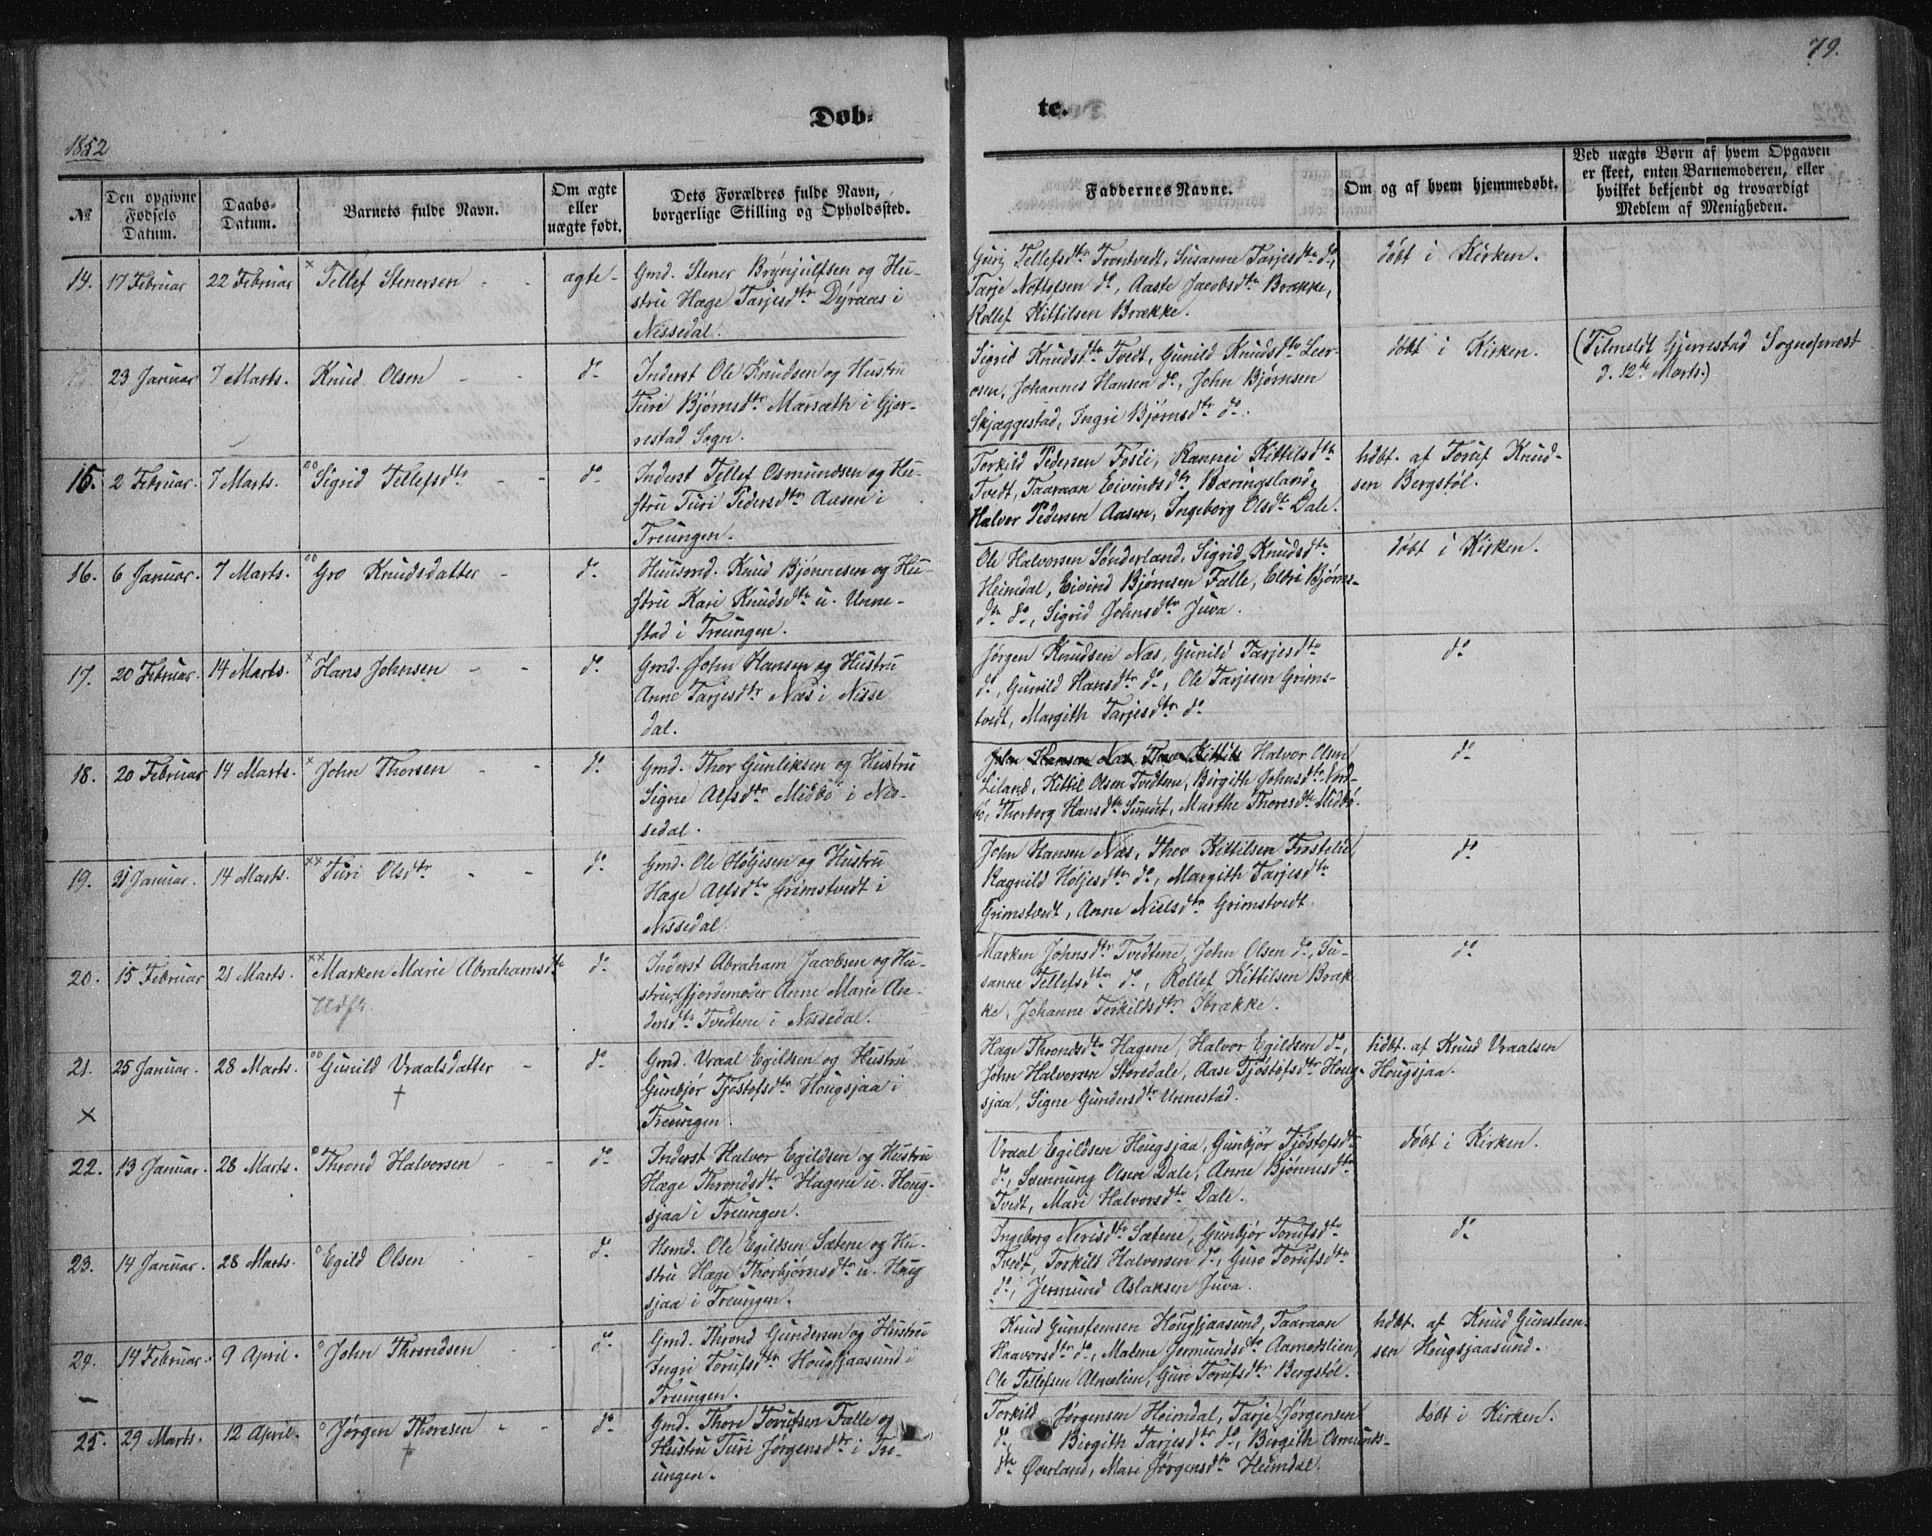 79.
Døb-
te.
1852
№
Den opgivne Fødsels Datum.
Daabs-Datum.
Barnets fulde Navn.
Om ægte eller uægte født.
Dets Forældres fulde Navn, borgerlige Stilling og Opholdssted.
Faddernes Navne.
Om og af hvem hjemmedøbt.
Ved uægte Børn af hvem Opgaven er skeet, enten Barnemoderen, eller hvilket bekjendt og troværdigt Medlem af Menigheden.
14. 17 Februar 22 Februar × Tellef Stenersen - - ægte-
Gmd. Stener Brynjulfsen og Hu-
stru Hæge Tarjesdtr Dyraas i
Nissedal.
Guri Tellefsdtr Trontvedt, Susanne Tarjesdtr do,
Tarje Nottolsen do, Aaste Jacobsdtr Brække,
Rollef Kittilsen Brække.
døbt i Kirken.
23 Januar 7 Marts. Knud Olsen - - do
Inderst Ole Knudsen og Hustru
Turi Bjørnsdtr Marsæth i Gjer-
restad Sogn.
Sigrid Knudsdtr Tvedt, Gunild Knudsdtr Leer-
osen, Johannes Hansen do, John Bjørnsen
Skjæggestad, Ingri Bjørnsdtr do.
døbt i Kirken.
(Tilmeldt Gjerrestad Sognepræst
d. 12te Marts.)
15. 2 Februar. 7 Marts. oo Sigrid Tellefsdtr - - do
Inderst Tellef Osmundsen og Hu-
stru Turi Pedersdtr Aasen i
Treungen.
Torkild Pedersen Fosli, Rannei Kittilsdtr
Tvedt, Taaraan Eivindsdtr Bæringsland,
Halvor Pedersen Aasen, Ingeborg Olsdtr Dale.
hdbt. af Toruf Knud-
sen Bergstøl.
16. 6 Januar. 7 Marts. oo Gro Knudsdatter - do
Huusmd. Knud Bjønnesen og Hu-
stru Kari Knudsdtr u. Unne-
stad i Treungen.
Ole Halvorsen Sønderland, Sigrid Knudsdtr
Heimdal, Eivind Bjørnsen Fælle, Eldri Bjørns-
dtr do, Sigrid Johnsdtr Juva.
døbt i Kirken.
17. 20 Februar. 14 Marts. × Hans Johnsen - - do
Gmd. John Hansen og Hustru
Anne Tarjesdtr Næs i Nisse
dal.
Jørgen Knudsen Næs, Gunild Tarjesdtr
do, Gunild Hansdtr do, Ole Tarjesen Grims-
tvedt, Margith Tarjesdtr do
do
18. 20 Februar 14 Marts. × John Thorsen - - do
Gmd. Thor Gunliksen og Hustru
Signe Alfsdtr Midbø i Nis-
sedal.
John Hansen Næs, Thor Kittils Halvor Olsen
Liland, Kittil Olsen Tvedtene, Birgith Johnsdtr Nord-
bø, Thorborg Hansdtr Sundet, Marthe Thoresdtr Midbø.
do
19. 31 Januar. 14 Marts. ×× Turi Olsdtr - - do
Gmd. Ole Høljesen og Hustru
Hæge Alfsdtr Grimstvedt i
Nissedal.
John Hansen Næs, Thor Kittilsen Frostelid
Ragnild Høljesdtr do, Margith Tarjesdtr
Grimstvedt, Anne Nielsdtr Grimstvedt.
do
20. 15 Februar 21 Marts. ×× Marken Marie Abrahamsdtr do
Udfl.
Inderst Abraham Jacobsen og Hu-
stru, Gjordemoder Anne Marie An-
dersdtr Tvedtene i Nissedal.
Marken Johnsdtr Tvedtene, John Olsen do, Su-
sanne Tellefsdtr do, Rollef Kittilsen Bræk-
ke, Johanne Torkildsdtr Brække.
do
21. 25 Januar. 28 Marts. oo Gunild Vraalsdatter - do
× †
Gmd. Vraal Egildsen og Hustru
Gunbjør Tjøstofsdtr Hougsjaa i
Treungen.
Hæge Throndsdtr Hagene, Halvor Egildsen do,
John Halvorsen Storedale, Aase Tjøstofsdtr Houg-
sjaa, Signe Gundersdtr Unnestad.
hdbt. af Knud Vraalsen
Hougsjaa.
22. 13 Januar. 28 Marts. o Thrond Halvorsen - - do
Inderst Halvor Egildsen og Hustru
Hæge Throndsdtr Hagene u. Houg-
sjaa i Treungen.
Vraal Egildsen Hougsjaa, Gunbjør Tjøstofsdtr
do, Svennung Olsen Dale, Anne Bjønnesdtr
Tvedt, Mari Halvorsdtr Dale.
døbt i Kirken.
23. 14 Januar. 28 Marts. o Egild Olsen do
Hsmd. Ole Egildsen Sætene og Hu-
stru Hæge Thorbjørnsdtr u. Houg
sjaa i Treungen.
Ingeborg Nerisdtr Sætene, Gunbjør Torufsdtr
Tvedt, Torkild Halvorsen do, Guro Torufsdtr
do, Jermund Aslaksen Juva.
do
24. 14 Februar. 9 April. o John Throndsen - - do
Gmd. Thrond Gundersen og Hustru
Ingri Torufsdtr Hougsjaasund i
Treungen.
Knud Gunstensen Hougsjaasund, Taaraan
Haavorsdtr do, Malene Jermundsdtr Aamodslien,
Ole Tellefsen Almelien, Guri Torufsdtr Bergstøl.
hdbt. af Knud Gunsten-
sen Hougsjaasund.
25. 29 Marts. 12 April. o Jørgen Thoresen - - do
†
Gmd. Thore Torufsen Fælle og
Hustru Turi Jørgensdtr i Tre-
ungen.
Torkild Jørgensen Heimdal, Tarje Jørgensen
do, Birgith Tarjesdtr do, Birgith Osmunds-
dtr Øverland, Mari Jørgensdtr Heimdal.
døbt i Kirken.